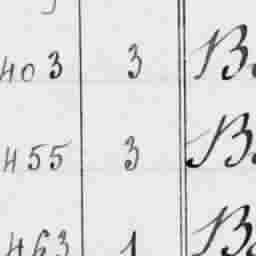 403 3 B
455 3 B
463 1 B